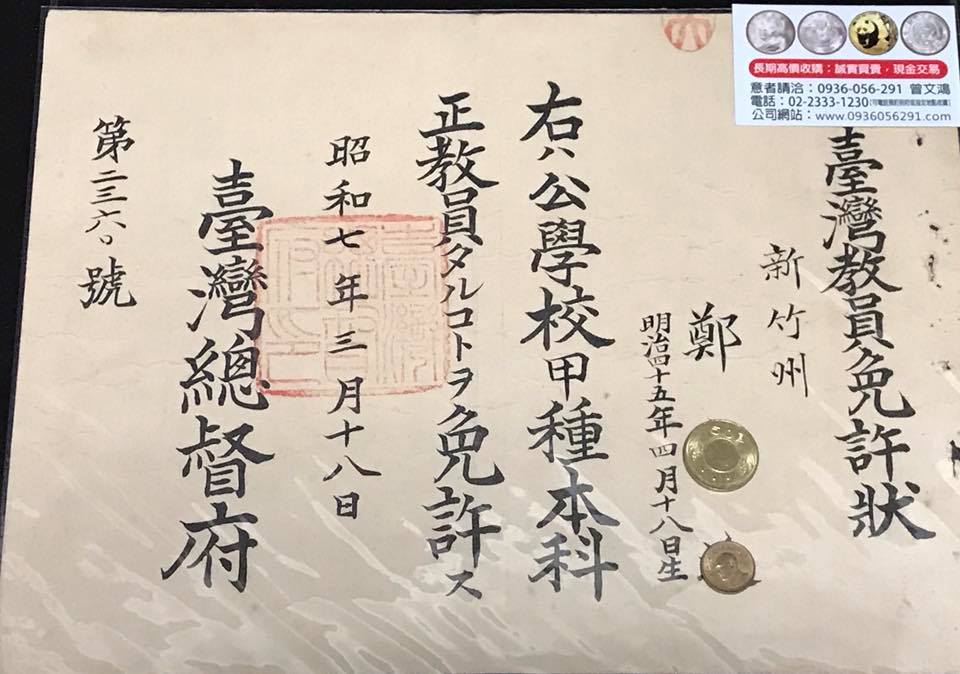 臺灣教員免許狀
新竹州
鄭
明治四十五年四月十八日生
右ハ公學校甲種本科
正教員タルコトヲ免許ス
昭和七年三月十八日
臺灣總督府
第二三六〇號
長期高價收購：誠實買賣，現金交易
意者請洽：0936-056-291 曾文鴻
電話：02-2333-1230
公司網站：www.0936056291.com